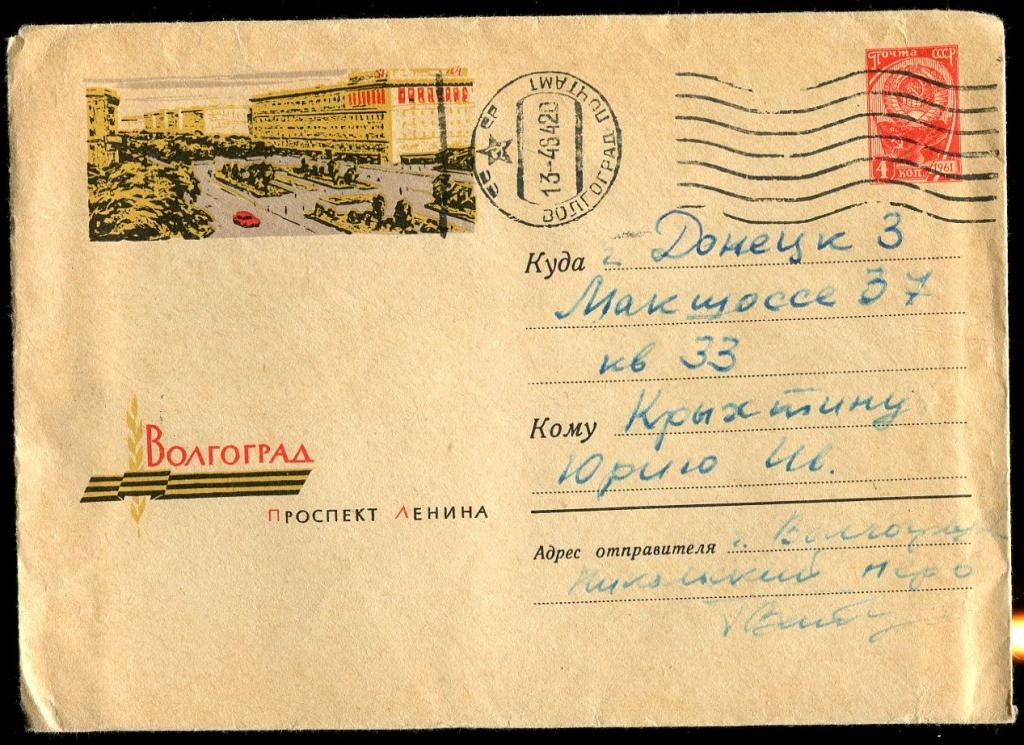 Почта СССР
4 коп. 1961
СССР
ВОЛГОГРАД ПОЧТАМТ
13-46420
Куда г. Донецк 3
Макшоссе 37
кв 33
Кому Крыхтину
Юрию Ив.
Волгоград
Проспект Ленина
Адрес отправителя г. Волгоград